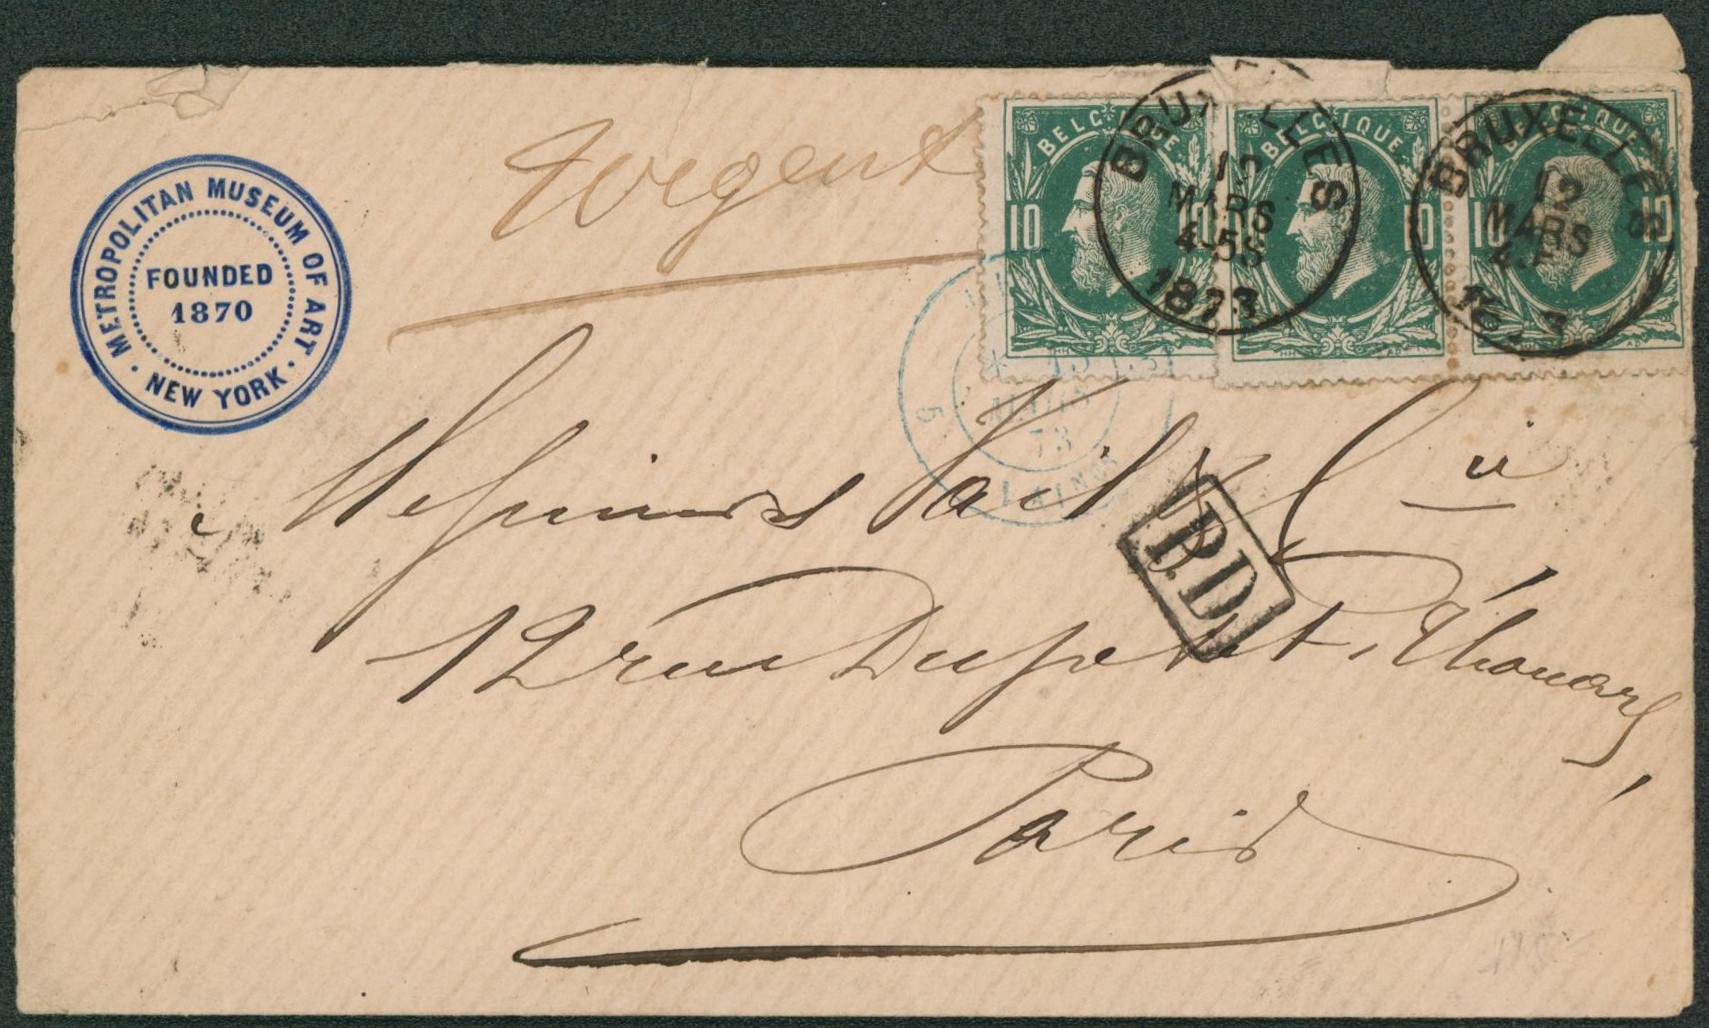 METROPOLITAN MUSEUM OF ART · NEW YORK ·
FOUNDED
1870
Urgent
BELGIQUE
10
BELGIQUE
10
BELGIQUE
10 10
BRUXELLES
12
MARS
4-5S
1873
BRUXELLES
12
MARS
1873
5
13
MARS
73
P.D.
Messieurs
12 rue Dupetit-Thouars,
Paris